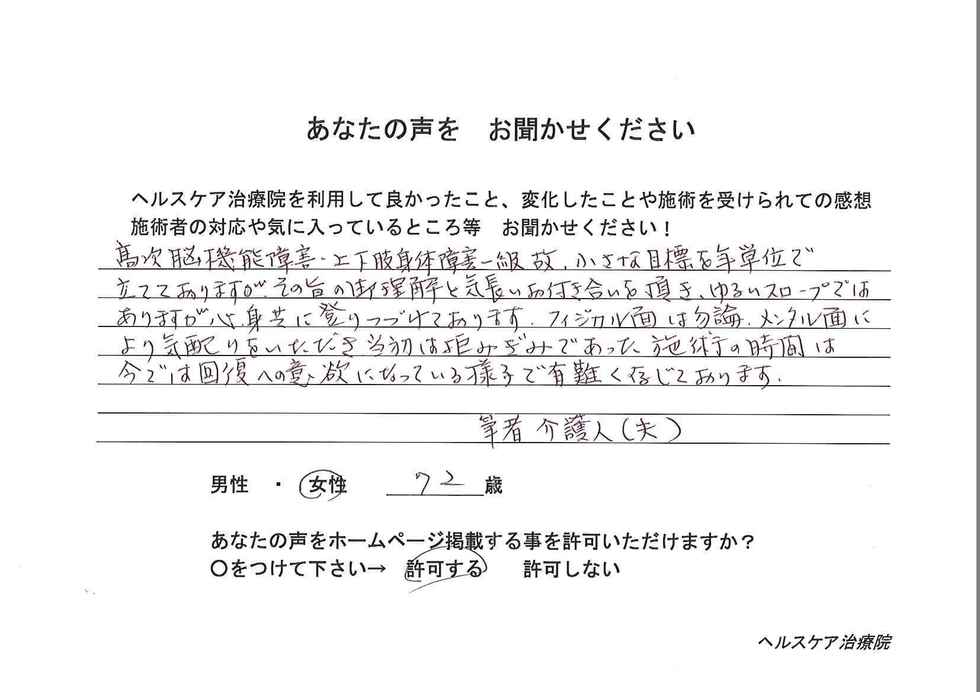 あなたの声を　お聞かせください
ヘルスケア治療院を利用して良かったこと、変化したことや施術を受けられての感想
施術者の対応や気に入っているところ等　お聞かせください！
高次脳機能障害・上下肢身体障害一級故、小さな目標を年単位で
立てておりますが、その旨の御理解と気長いお付き合いを頂き、ゆるいスロープでは
ありますが心身共に登りつづけております。フィジカル面は勿論、メンタル面に
より気配りをいただき当初は拒みぎみであった施術の時間は
今では回復への意欲になっている様子で有難く信じております。
筆者 介護人(夫)
男性　・　女性　72歳
あなたの声をホームページ掲載する事を許可いただけますか？
〇をつけて下さい→　許可する　　許可しない
ヘルスケア治療院